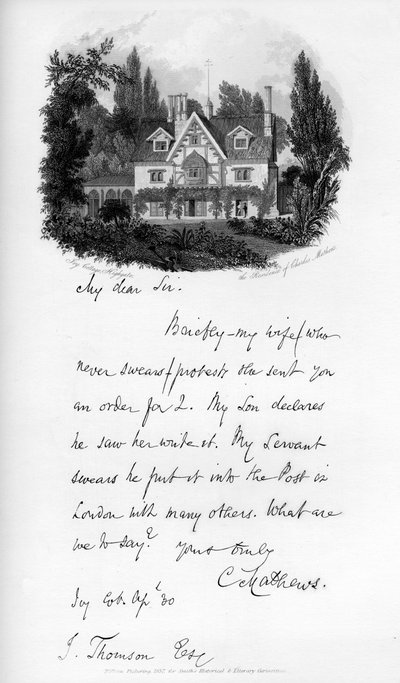 Ivy Cottage, Highgate,
the Residence of Charles Mathews
My dear Sir.
Briefly - my wife (who
never swears) protests she sent you
an order for 2. My Son declares
he saw her write it. My Servant
swears he put it into the Post in
London with many others. What are
we to say? Yours truly
C Mathews.
Ivy Cot. Apl 30
J. Thomson Esq
Historical & Literary Curiosities